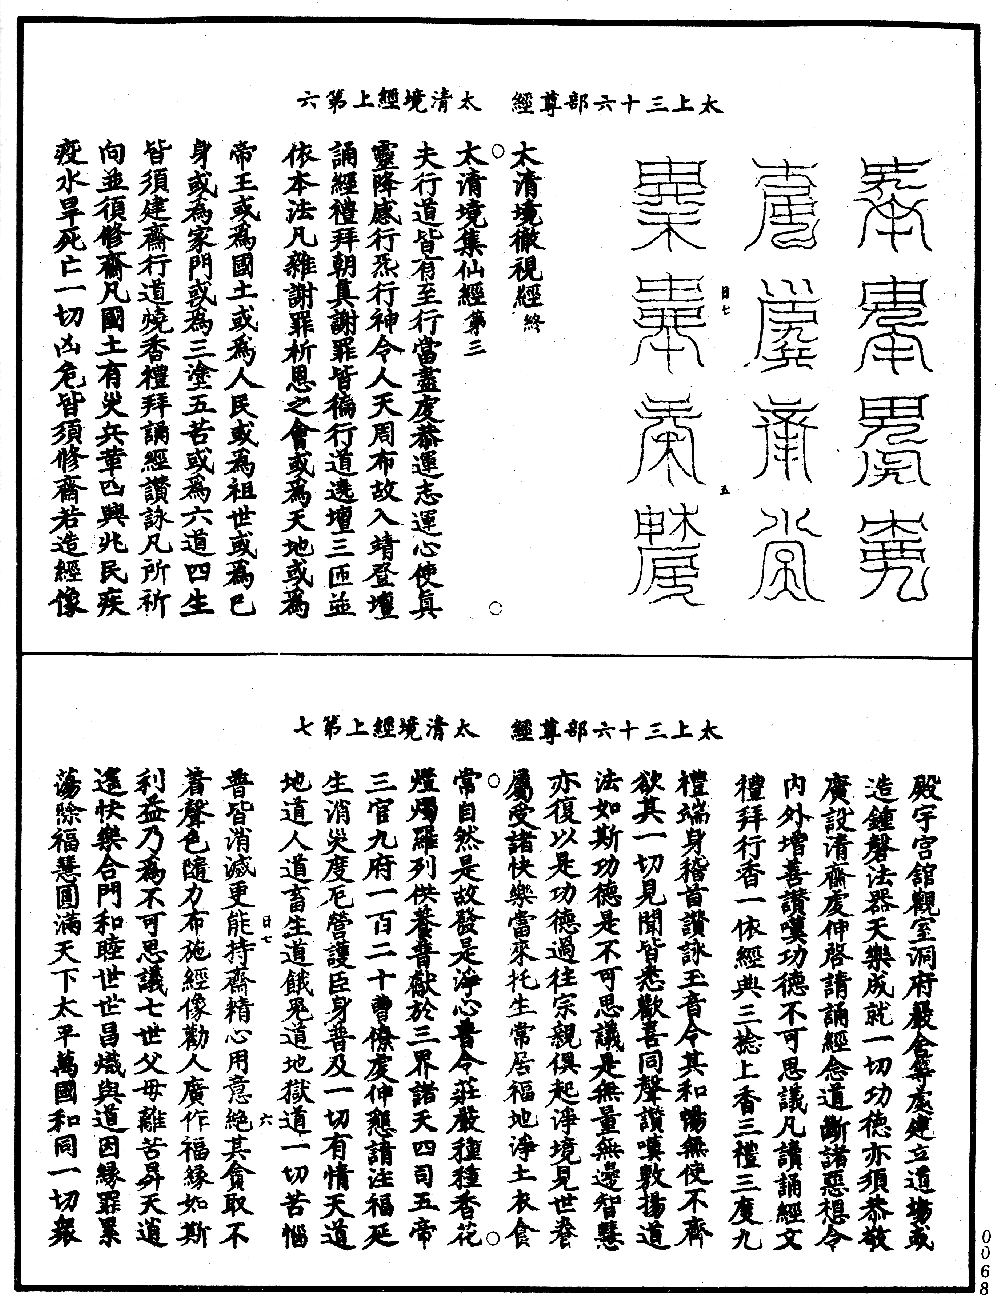 太上三十六部尊經　太清境經上第六
日七
五
太清境徹視經終
太清境集仙經第三
夫行道皆有至行當盡虔恭運志運心使眞
靈降感行炁行神令人天周布故入靖登壇
誦經禮拜朝眞謝罪皆徧行道遶壇三匝並
依本法凡雜謝罪祈恩之會或爲天地或爲
帝王或爲國土或爲人民或爲祖世或爲己
身或爲家門或爲三塗五苦或爲六道四生
皆須建齋行道燒香禮拜誦經讚詠凡所祈
向並須修齋凡國土有災兵革四興兆民疾
疫水旱死亡一切凶危皆須修齋若造經像
太上三十六部尊經　太清境經上第七
殿宇宮館觀室洞府嚴舍等處建立道場或
造鍾磬法器天樂成就一切功德亦須恭敬
廣設清齋虔伸啓請誦經念道斷諸惡想令
內外增善讚嘆功德不可思議凡讀誦經文
禮拜行香一依經典三捻上香三禮三度九
禮端身稽首讚詠玉音令其和暢無使不齊
欲其一切見聞皆悉歡喜同聲讚嘆敷揚道
法如斯功德是不可思議是無量無邊智慧
亦復以是功德過往宗親俱起淨境見世眷
屬受諸快樂當來托生常居福地淨土衣食
常自然是故發是淨心普令莊嚴種種香花
燈燭羅列供養普獻於三界諸天四司五帝
三官九府一百二十曹僚虔伸懇請注福延
生消災度厄營護臣身普及一切有情天道
地道人道畜生道餓鬼道地獄道一切苦惱
日七
六
普皆消滅更能持齋精心用意絕其貪取不
着聲色隨力布施經像勸人廣作福緣如斯
利益乃爲不可思議七世父母離苦昇天道
遙快樂合門和睦世世昌熾與道因緣罪累
蕩除福慧圓滿天下太平萬國和同一切衆
0068